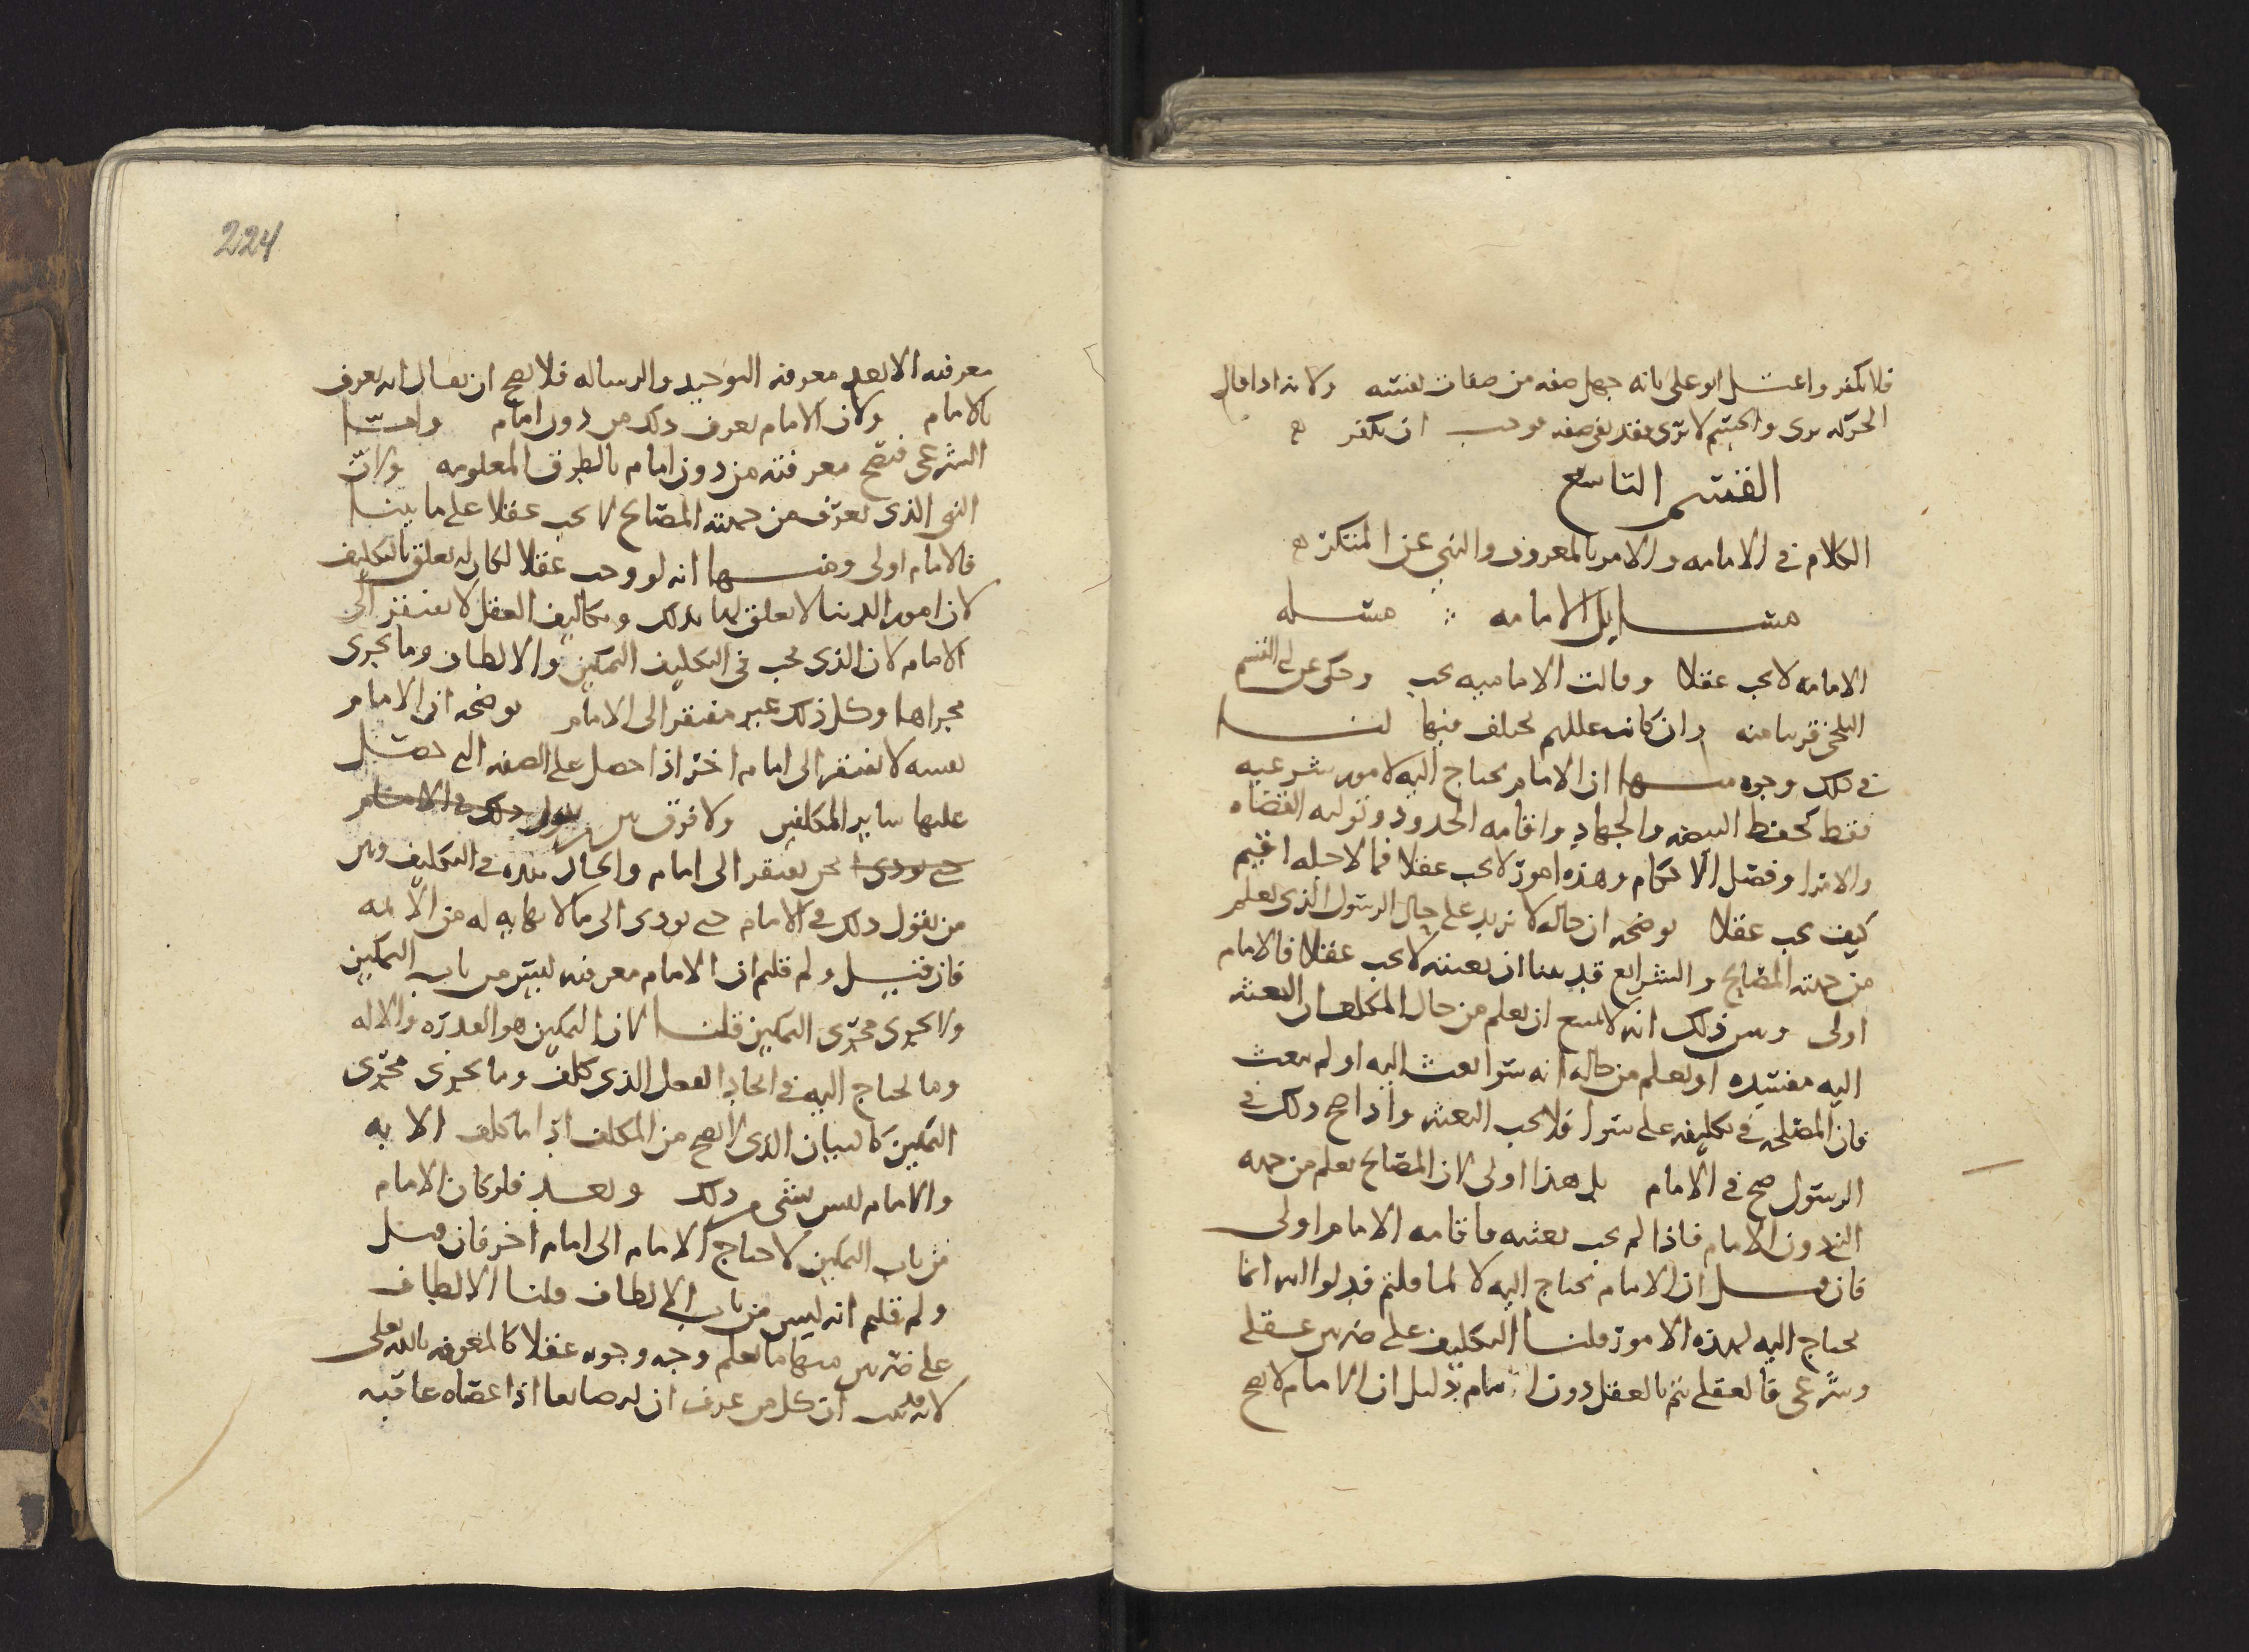 فلا يكفر واعتل ابو علي بانه جهل صفه من صفات نفسه ولانه اذا قال
الحركه ترى والجسم لا يرى فقد نفى صفه فوجب ان يكفر
القسم التاسع
الكلام في الامامه والامر بالمعروف والنهي عن المنكر
مسايل الامامه مسله
الامامه لا تجب عقلا وقالت الاماميه تجب وحكي عن ابي القسم
البلخي قريبا منه وان كانت عللهم تختلف فيها لنا
في ذلك وجوه منها ان الامام يحتاج اليه لامور شرعيه
فقط كحفظ البيضه والجهاد واقامه الحدود وتوليه القضاه
والامرا وفصل الاحكام وهذه امور لا تجب عقلا فما لاجله اقيم
كيف يجب عقلا يوضحه ان حاله لا تزيد على حال الرسول الذي يعلم
من جهته المصالح والشرايع قد بينا ان بعثته لا تجب عقلا فالامام
اولى وبين ذلك انه لا يمتنع ان يعلم من حال المكلف ان البعثه
اليه مفسده او يعلم من حاله انه سوا بعث اليه او لم يبعث
فان المصلحه في تكليفه على سوا فلا تجب البعثه واذا صح ذلك في
الرسول صح في الامام بل هذا اولى لان المصالح تعلم من جهه
النبي دون الامام فاذا لم تجب بعثته فاقامه الامام اولى
فان قيل ان الامام يحتاج اليه لا لما قلتم فدلوا انه انما
يحتاج اليه لهذه الامور قلنا التكليف على ضربين عقلي
وشرعي فالعقلي يتم بالعقل دون الامام بدليل ان الامام لا يصح
224
معرفته الا بعد معرفه التوحيد والرساله فلا يصح ان يقال انه يعرف
بالامام ولان الامام يعرف ذلك من دون امام واما
الشرعي فتصح معرفته من دون امام بالطرق المعلومه ولان
النبي الذي تعرف من جهته المصالح لا يجب عقلا على ما بينا
فالامام اولى ومنها انه لو وجب عقلا لكان له تعلق بالتكليف
لان امور الدنيا لا تعلق لها بذلك وتكاليف العقل لا تفتقر الى
الامام لان الذي يجب في التكليف التمكين والالطاف وما يجري
مجراها وكل ذلك غير مفتقر الى الامام يوضحه ان الامام
نفسه لا يفتقر الى امام اخر اذا حصل على الصفه التي حصل
عليها ساير المكلفين ولا فرق بين من يقول ذلك في الامام
حتى يودي نحن نفتقر الى امام والحال هذه في التكليف وبين
من يقول ذلك في الامام حتى يودي الى ما لا نهايه له من الايمه
فان قيل ولم قلتم ان الامام معرفته ليس من باب التمكين
ولا يجري مجرى التمكين قلنا لان التمكين هو القدره والاله
وما يحتاج اليه في ايجاد الفعل الذي كلف وما يجري مجرى
التمكين كالبيان الذي لا يصح من المكلف اذا ما كلف الا به
والامام ليس بشي من ذلك وبعد فلو كان الامام
من باب التمكين لاحتاج الامام الى امام اخر فان قيل
ولم قلتم انه ليس من باب الالطاف قلنا الالطاف
على ضربين منها ما يعلم وجه وجوبه عقلا كالمعرفه بالله تعلى
لانه قد ثبت ان كل من عرف ان له صانعا اذا عصاه عاقبه